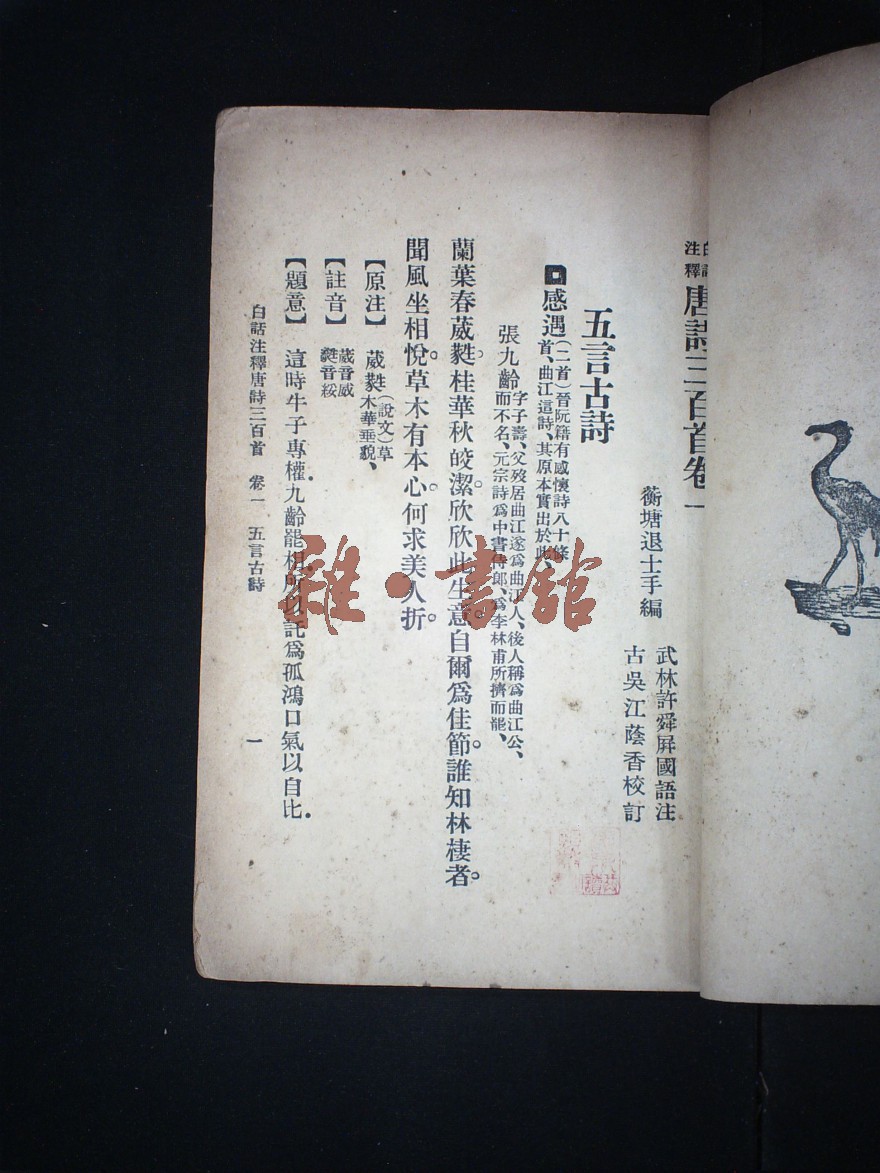 白話注釋唐詩三百首卷一
蘅塘退士手編
武林許舜屏國語注
古吳江蔭香校訂
五言古詩
感遇(二首)晉阮籍有感懷詩八十條
首、曲江這詩、其原本實出於此、
張九齡字子壽、父歿居曲江遂爲曲江人、後人稱爲曲江公、
而不名、元宗詩爲中書侍郎、爲李林甫所擠而罷、
蘭葉春葳蕤。桂華秋皎潔。欣欣此生意。自爾爲佳節。誰知林棲者。
聞風坐相悅。草木有本心。何求美人折。
【原注】葳蕤(說文)草
木華垂貌、
【註音】葳音威
蕤音綏
【題意】這時牛子專權.九齡罷相.所以託爲孤鴻口氣以自比.
白話注釋唐詩三百首 卷一 五言古詩 一
雜·書館